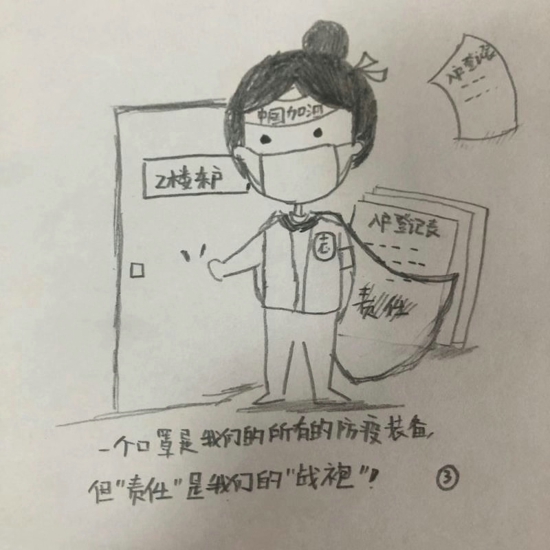 入户登记表
中国加油
2楼东户
志
入户登记表
责任
一个口罩是我们的所有的防疫装备,
但"责任"是我们的"战袍"!
③